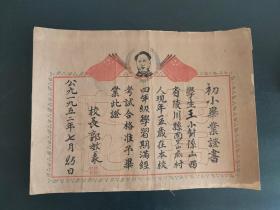 初小畢業證書
學生王小對係山西
省陵川縣西底村
人現年一五歲在本校
四年級學習期滿經
考試合格准予畢
業此證
校長郭
公元一九五二年七月25日